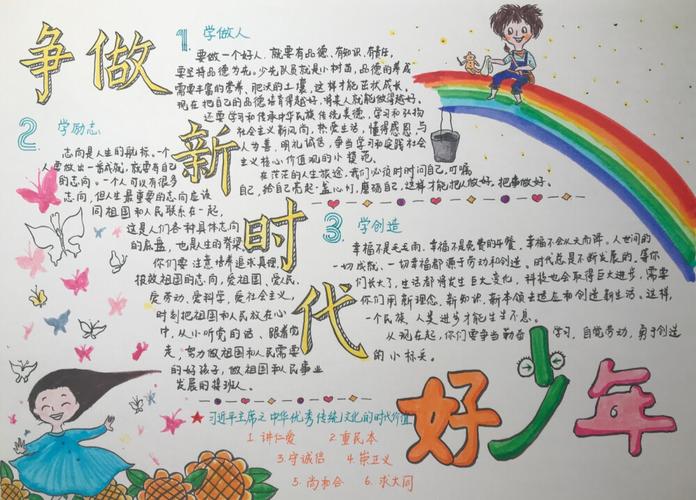 争做
新
时
代
好少年
1 学做人
要做一个好人,就要有品德、有知识、有责任,
要坚持品德为先。少先队员就是小树苗,品德的养成
需要丰富的营养、肥沃的土壤,这样才能茁壮成长,
现在把自己的品德培育得越好,将来人就能做得越好。
还要学习和传承中华民族传统美德,学习和弘扬
社会主义新风尚,热爱生活,懂得感恩,与
人为善,明礼诚信,争当学习和实践社会
主义核心价值观的小模范。
在茫茫的人生旅途,我们必须时时问自己,叮嘱
自己,给自己亮起一盏心灯,璀璨自己,这样才能把人做好,把事做好。
2 学励志
志向是人生的航标。一个
人要做出一番成就,就要有自己
的志向。一个人可以有很多
志向,但人生最重要的志向应该
同祖国和人民联系在一起,
这是人们各种具体志向
的底盘,也是人生的脊梁。
你们要注意培养追求真理、
报效祖国的志向,爱祖国、爱人民、
爱劳动、爱科学、爱社会主义,
时刻把祖国和人民放在心
中,从小听党的话、跟着党
走,努力做祖国和人民需要
的好孩子,做祖国和人民事业
发展的接班人。
3 学创造
幸福不是毛毛雨,幸福不是免费的午餐,幸福不会从天而降。人世间的
一切成就、一切幸福都源于劳动和创造。时代总是不断发展的,等你
们长大了,生活都将发生巨大变化,科技也会取得巨大进步,需要
你们用新理念、新知识、新本领去适应和创造新生活。这样,
一个民族、人类进步才能生生不息。
从现在起,你们要争当勤奋学习、自觉劳动、勇于创造
的小标兵。
★习近平主席之中华优秀传统文化的时代价值
1. 讲仁爱 2. 重民本
3. 守诚信 4. 崇正义
5. 尚和合 6. 求大同